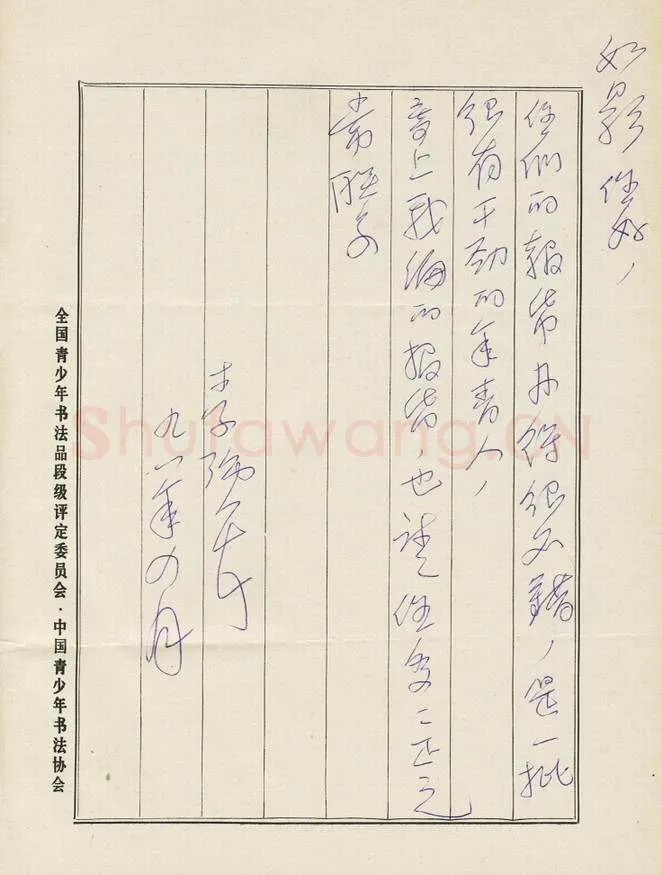 如影 你好，
你们的报货办得很不错，是一批
很有干劲的年青人，
寄上我编的报货，也望你多〻正之
常联系
九一年四月
全国青少年书法品段级评定委员会·中国青少年书法协会
Shufawang.CN